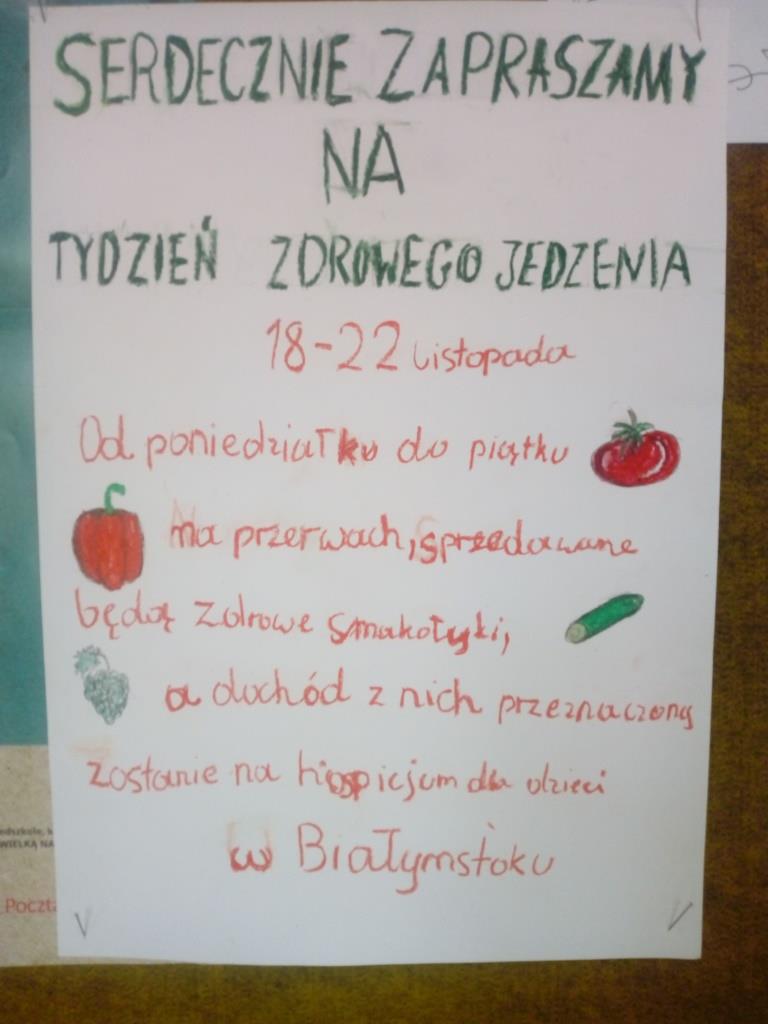 SERDECZNIE ZAPRASZAMY
NA
TYDZIEŃ ZDROWEGO JEDZENIA
18-22 listopada
Od poniedziałku do piątku
na przerwach, sprzedawane
będą zdrowe smakołyki,
a dochód z nich przeznaczony
zostanie na hospicjum dla dzieci
w Białymstoku
WIELKĄ NA
Poczta